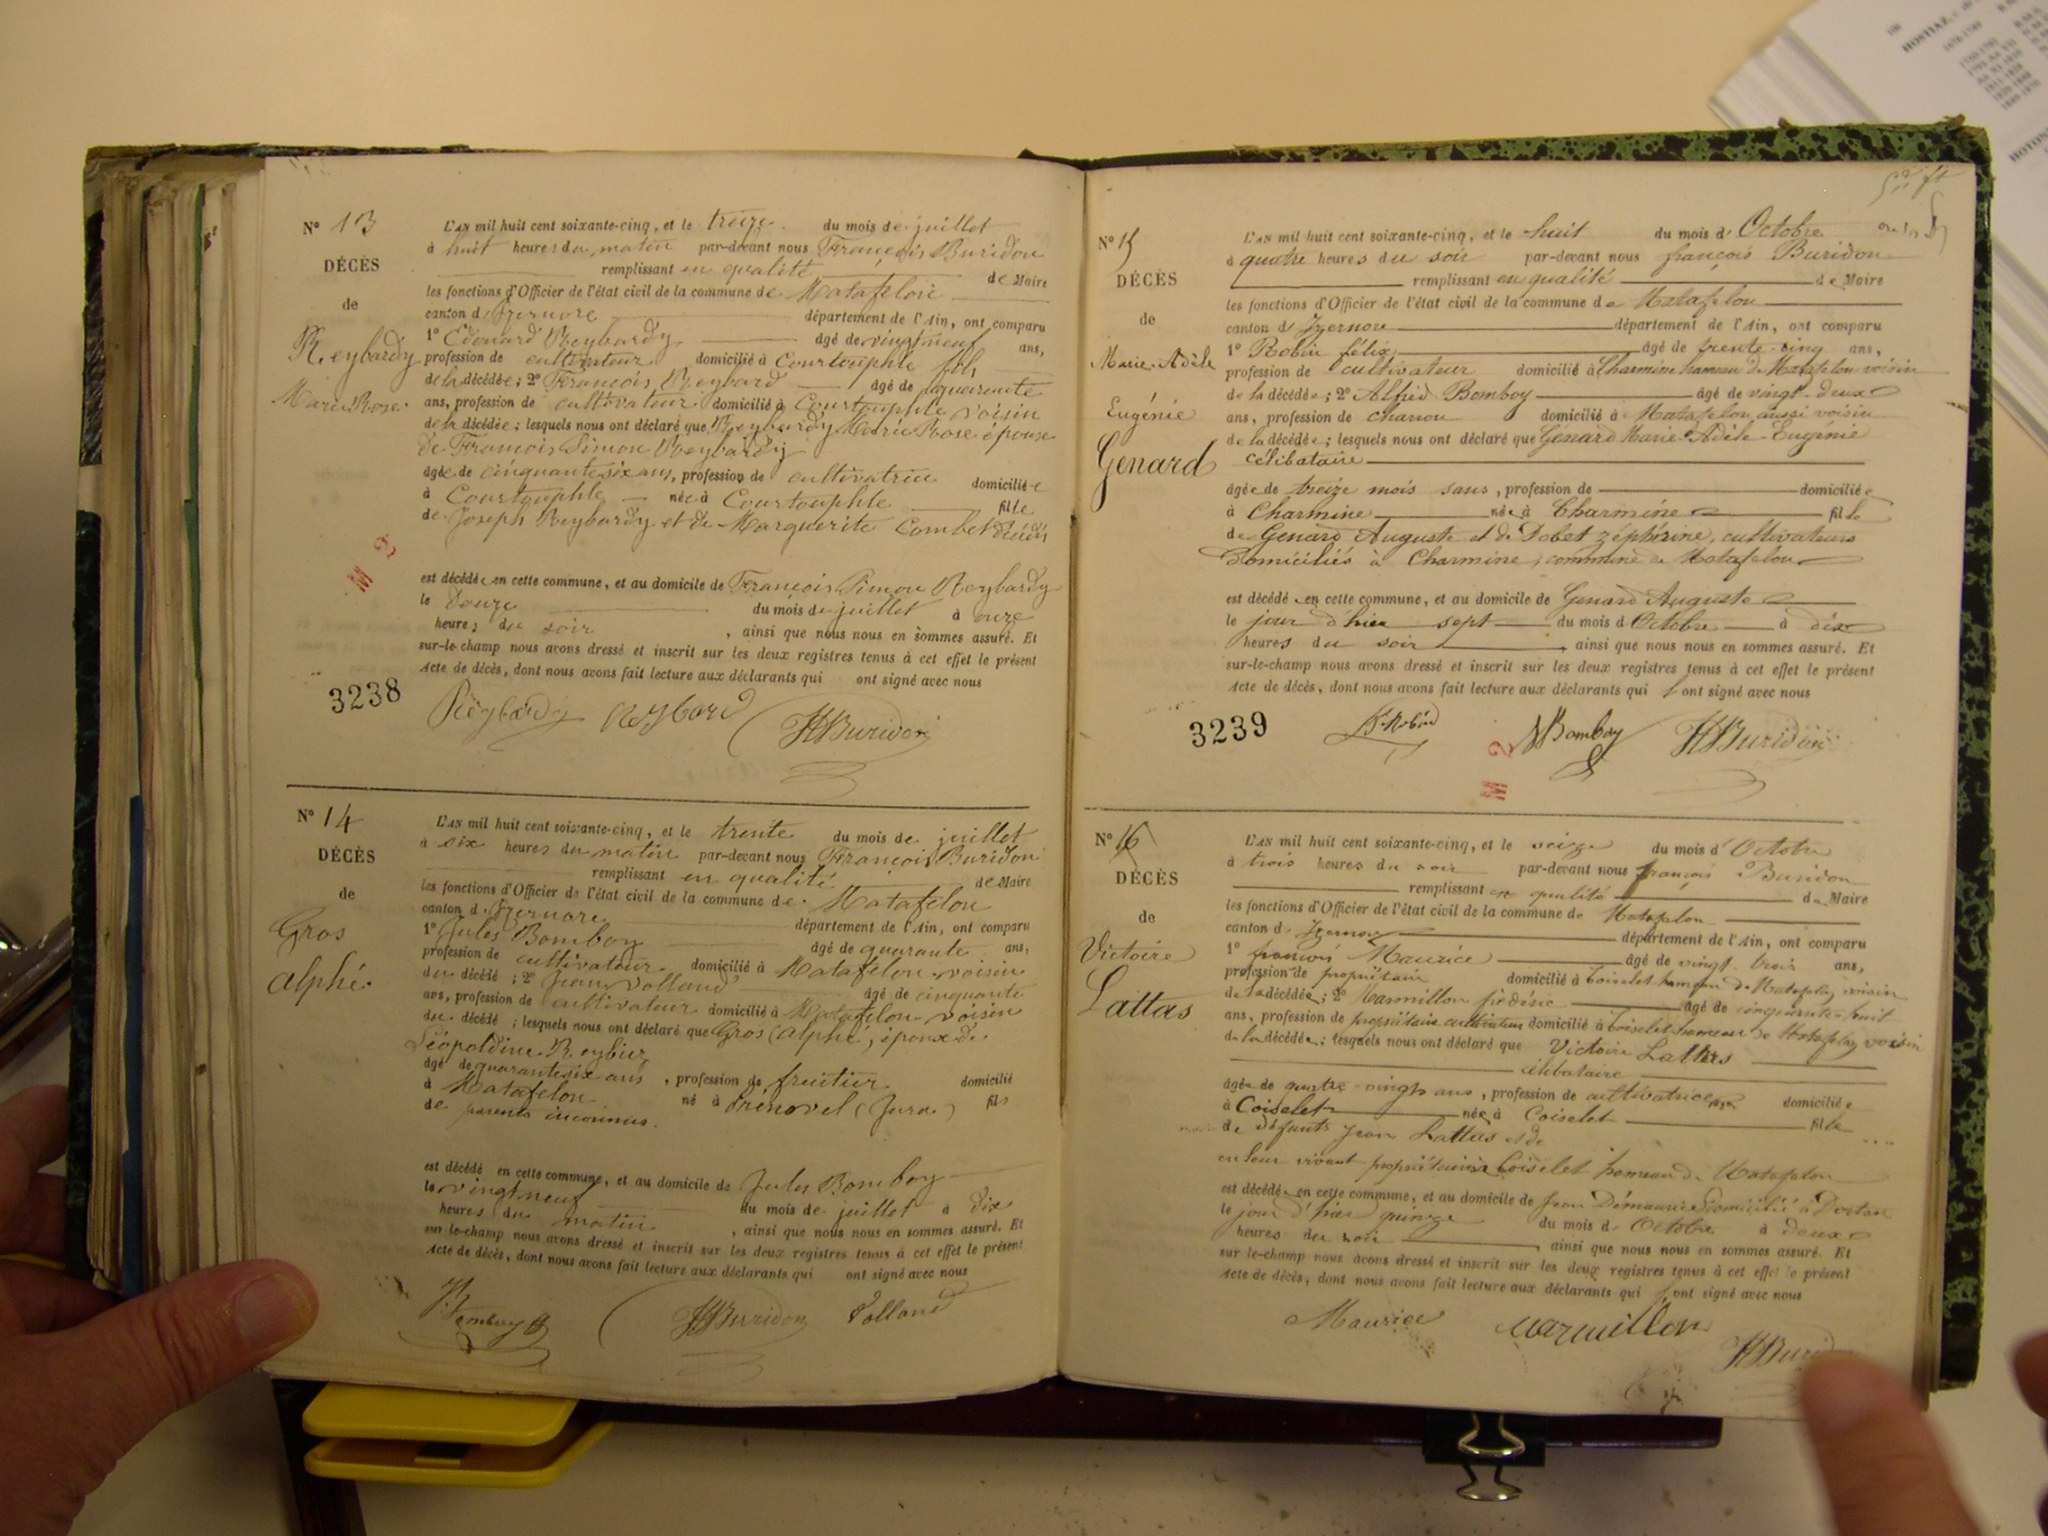 N° 13
DÉCÈS
de
Reybardy
Marie Rose
L'AN mil huit cent soixante-cinq, et le treize du mois de juillet
à huit heures du matin par-devant nous François Buridon
remplissant en qualité de Maire
les fonctions d'Officier de l'état civil de la commune de Matafelon
canton d'Izernore département de l'Ain, ont comparu
1° Edouard Reybardy âgé de vingt neuf ans,
profession de cultivateur domicilié à Courtouphle fils
de la décédée; 2° François Reybard âgé de quarente
ans, profession de cultivateur domicilié à Courtouphle voisin
de la décédée; lesquels nous ont déclaré que Reybardy Marie Rose épouse
de François Simon Reybardy
âgée de cinquante six ans, profession de cultivatrice domiciliée
à Courtouphle née à Courtouphle fille
de Joseph Reybardy et de Marguerite Combet
est décédée en cette commune, et au domicile de François Simon Reybardy
le douze du mois de juillet à onze
heures du soir, ainsi que nous nous en sommes assuré. Et
sur-le-champ nous avons dressé et inscrit sur les deux registres tenus à cet effet le présent
acte de décès, dont nous avons fait lecture aux déclarants qui ont signé avec nous
3238
Reybardy Reybard Buridon
N° 14
DÉCÈS
de
Gros
alphé.
L'AN mil huit cent soixante-cinq, et le trente du mois de juillet
à six heures du matin par-devant nous François Buridon
remplissant en qualité de Maire
les fonctions d'Officier de l'état civil de la commune de Matafelon
canton d'Izernore département de l'Ain, ont comparu
1° Jules Bomboy âgé de quarante ans,
profession de cultivateur domicilié à Matafelon voisin
du décédé; 2° Jean Volland âgé de cinquante
ans, profession de cultivateur domicilié à Matafelon voisin
du décédé; lesquels nous ont déclaré que Gros alphé, époux de
Léopoldine Reybier
âgé de quarante six ans, profession de fruitier domicilié
à Matafelon né à Prénovel (Jura) fils
de parents inconnus.
est décédé en cette commune, et au domicile de Jules Bomboy
le vingt neuf du mois de juillet à dix
heures du matin, ainsi que nous nous en sommes assuré. Et
sur-le-champ nous avons dressé et inscrit sur les deux registres tenus à cet effet le présent
acte de décès, dont nous avons fait lecture aux déclarants qui ont signé avec nous
Bomboy Buridon Volland
N° 15
DÉCÈS
de
Marie Adèle
Eugénie
Genard
L'AN mil huit cent soixante-cinq, et le huit du mois d'Octobre
à quatre heures du soir par-devant nous françois Buridon
remplissant en qualité de Maire
les fonctions d'Officier de l'état civil de la commune de Matafelon
canton d'Izernore département de l'Ain, ont comparu
1° Robin félix âgé de trente-cinq ans,
profession de cultivateur domicilié à Charmine hameau de Matafelon voisin
de la décédée; 2° Alfred Bomboy âgé de vingt-deux
ans, profession de charron domicilié à Matafelon aussi voisin
de la décédée; lesquels nous ont déclaré que Genard Marie-Adèle-Eugénie
célibataire
âgée de treize mois sans, profession de domiciliée
à Charmine née à Charmine fille
de Genard Auguste et de Dobet zéphirine, cultivateurs
domiciliés à Charmine, commune de Matafelon
est décédée en cette commune, et au domicile de Genard Auguste
le jour d'hier sept du mois d'Octobre à dix
heures du soir, ainsi que nous nous en sommes assuré. Et
sur-le-champ nous avons dressé et inscrit sur les deux registres tenus à cet effet le présent
acte de décès, dont nous avons fait lecture aux déclarants qui ont signé avec nous
3239
Robin Bomboy Buridon
N° 16
DÉCÈS
de
Victoire
Lattas
L'AN mil huit cent soixante-cinq, et le seize du mois d'Octobre
à trois heures du soir par-devant nous françois Buridon
remplissant en qualité de Maire
les fonctions d'Officier de l'état civil de la commune de Matafelon
canton d'Izernore département de l'Ain, ont comparu
1° françois Maurice âgé de vingt-trois ans,
profession de propriétaire domicilié à Coiselet hameau de Matafelon voisin
de la décédée; 2° Marmillon frédéric âgé de cinquante-huit
ans, profession de propriétaire cultivateur domicilié à Coiselet hameau de Matafelon voisin
de la décédée; lesquels nous ont déclaré que Victoire Lattas
célibataire
âgée de quatre-vingts ans, profession de cultivatrice domiciliée
à Coiselet née à Coiselet fille
de défunts Jean Lattas et de
en leur vivant propriétaires Coiselet hameau de Matafelon
est décédée en cette commune, et au domicile de Jean Démaurice domicilié à Dortan
le jour d'hier quinze du mois d'Octobre à deux
heures du soir, ainsi que nous nous en sommes assuré. Et
sur-le-champ nous avons dressé et inscrit sur les deux registres tenus à cet effet le présent
acte de décès, dont nous avons fait lecture aux déclarants qui ont signé avec nous
Maurice Marmillon Buridon
HOSTIAZ